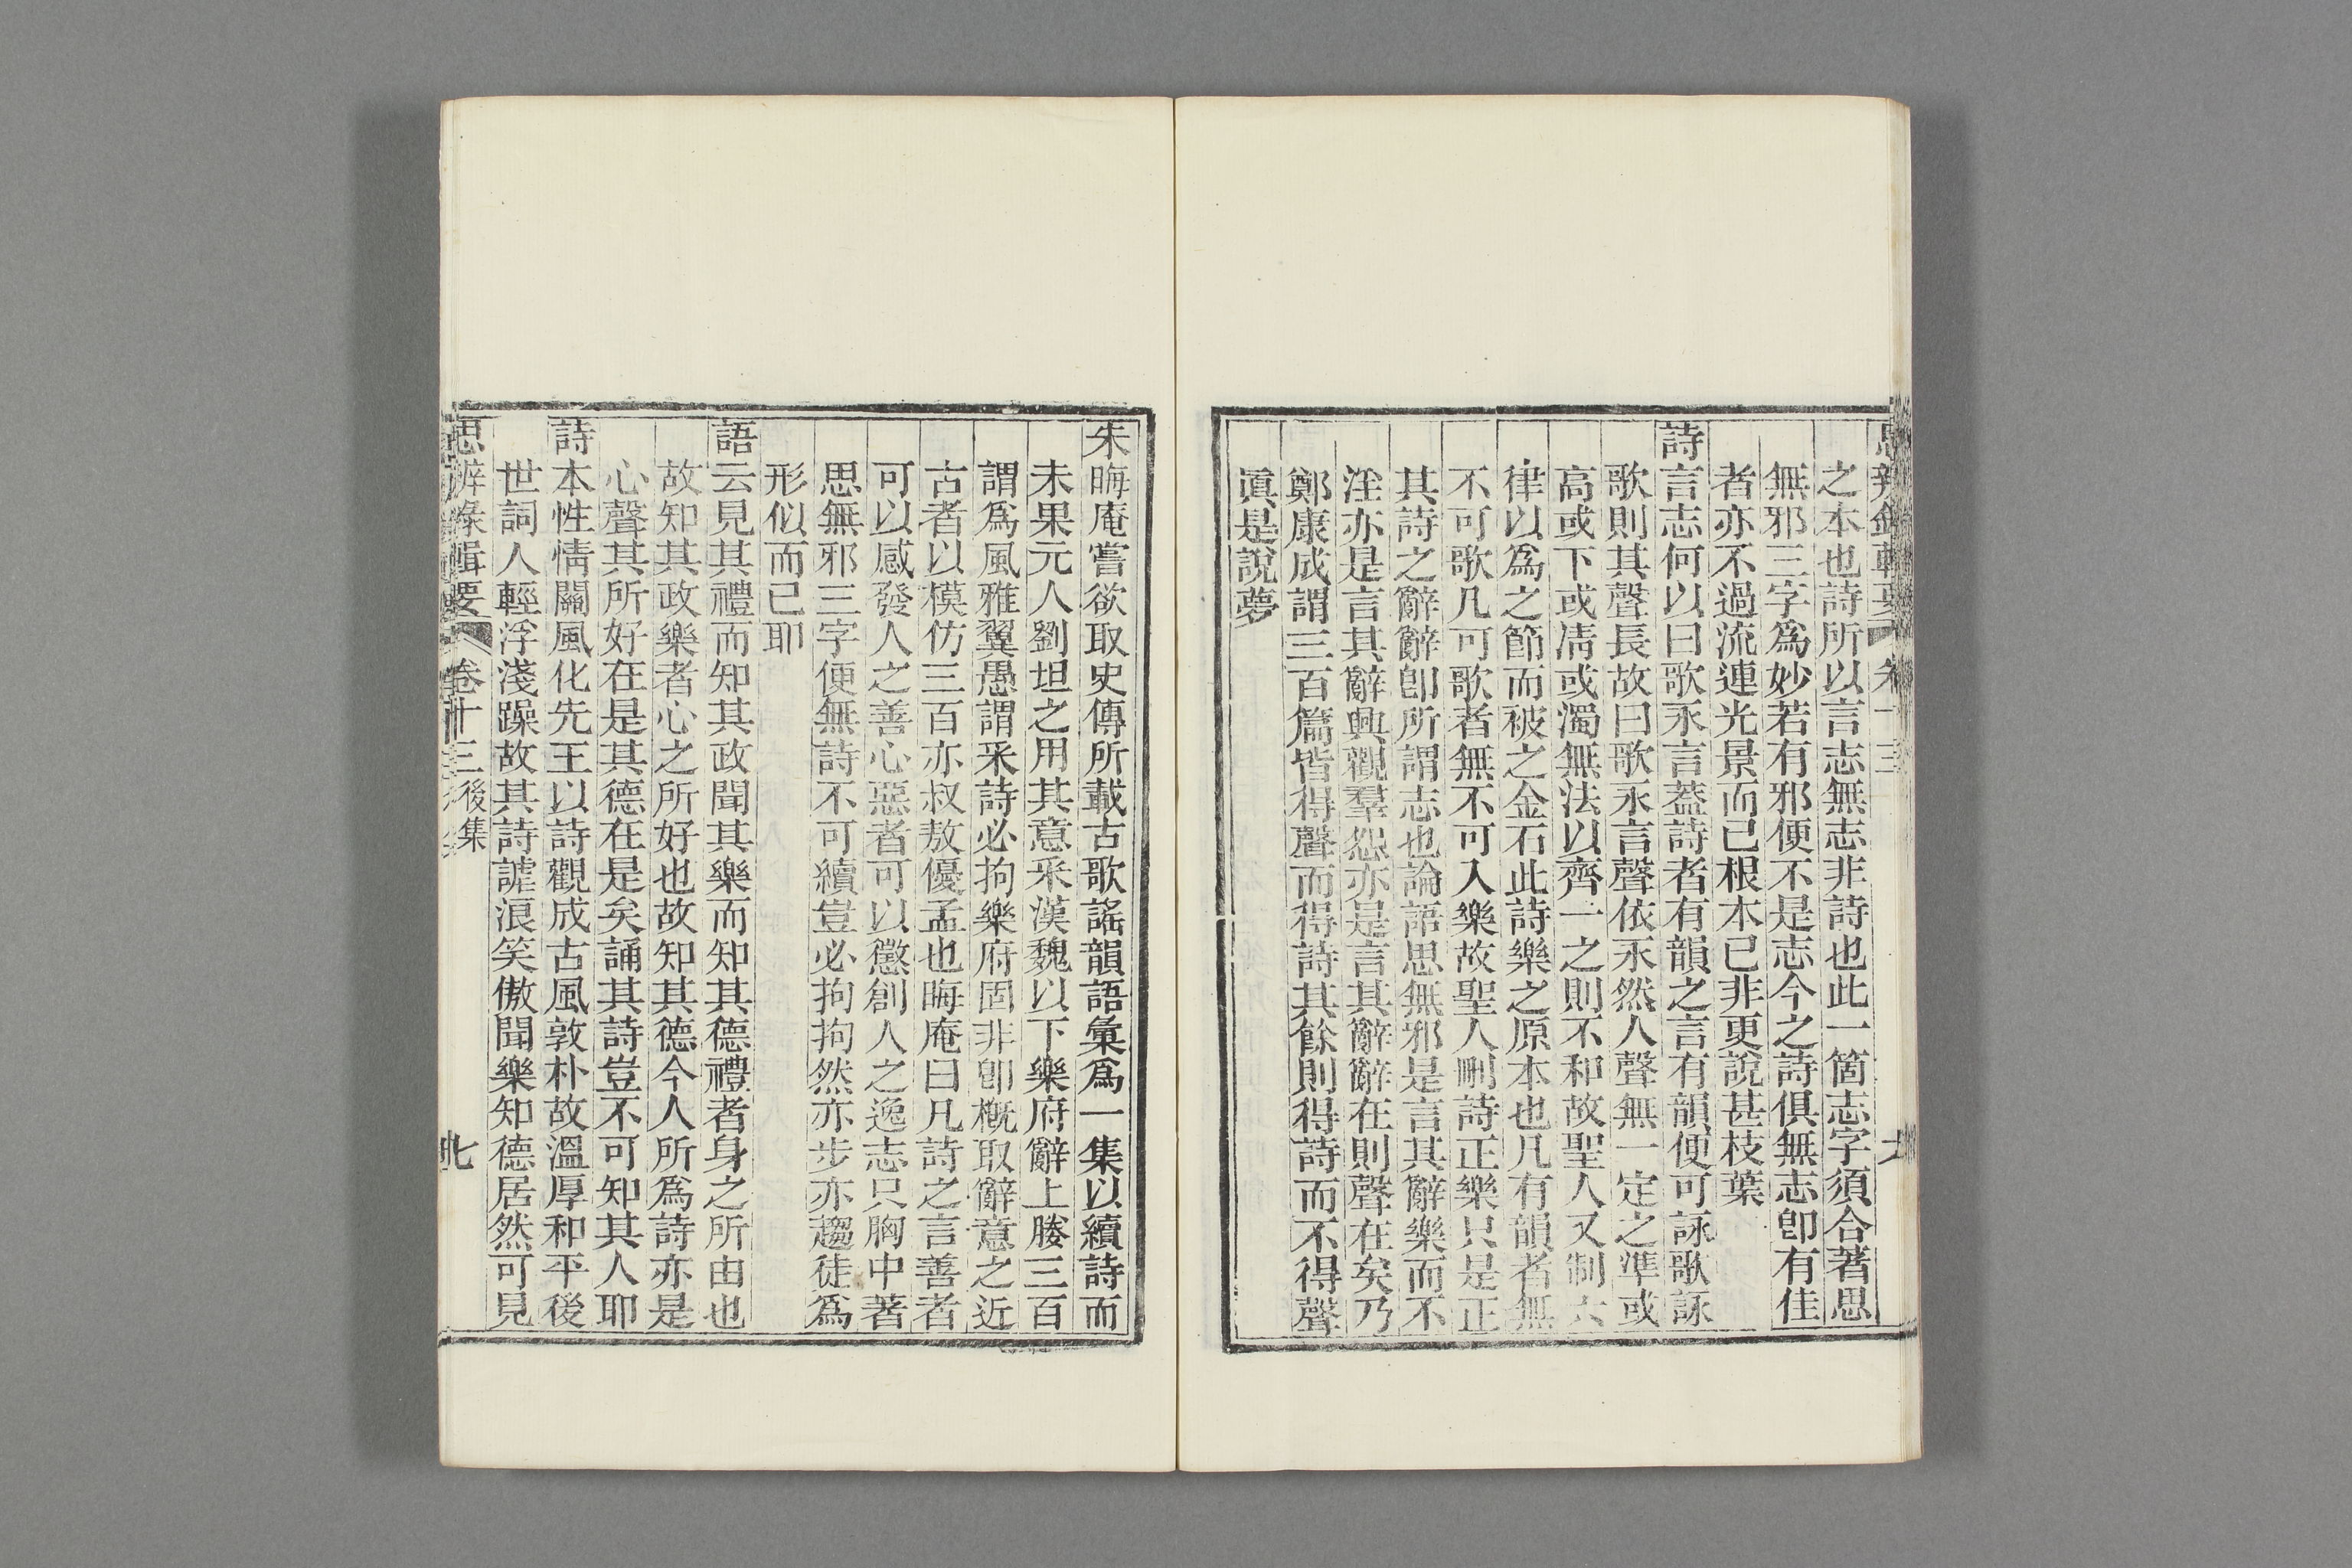 之本也詩所以言志無志非詩也此一箇志字須合著思
無邪三字爲妙若有邪便不是志今之詩俱無志卽有佳
者亦不過流連光景而已根本已非更說甚枝葉
詩言志何以曰歌永言葢詩者有韻之言有韻便可詠歌詠
歌則其聲長故曰歌永言聲依永然人聲無一定之準或
高或下或淸或濁無法以齊一之則不和故聖人又制六
律以爲之節而被之金石此詩樂之原本也凡有韻者無
不可歌凡可歌者無不可入樂故聖人刪詩正樂只是正
其詩之辭辭卽所謂志也論語思無邪是言其辭樂而不
淫亦是言其辭興觀羣怨亦是言其辭辭在則聲在矣乃
鄭康成謂三百篇皆得聲而得詩其餘則得詩而不得聲
眞是說夢
朱晦庵嘗欲取史傳所載古歌謠韻語彙爲一集以續詩而
未果元人劉坦之用其意采漢魏以下樂府辭上媵三百
謂爲風雅翼愚謂采詩必拘樂府固非卽概取辭意之近
古者以模仿三百亦叔敖優孟也晦庵曰凡詩之言善者
可以感發人之善心惡者可以懲創人之逸志只胸中著
思無邪三字便無詩不可續豈必拘拘然亦步亦趨徒爲
形似而已耶
語云見其禮而知其政聞其樂而知其德禮者身之所由也
故知其政樂者心之所好也故知其德今人所爲詩亦是
心聲其所好在是其德在是矣誦其詩豈不可知其人耶
詩本性情關風化先王以詩觀成古風敦朴故溫厚和平後
世詞人輕浮淺躁故其詩謔浪笑傲聞樂知德居然可見
思辨錄輯要 卷十三後集 七